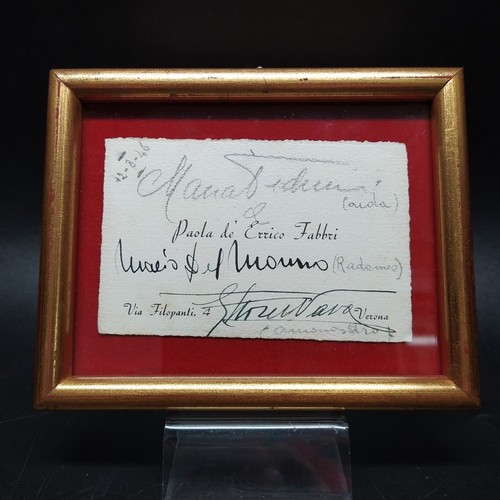 12-8-46
Maria Pedrini
(aida)
Paola de' Errico Fabbri
Mario Del Monaco (Radames)
Via Filopanti, 4 Ettore Nava Verona
(amonasro)